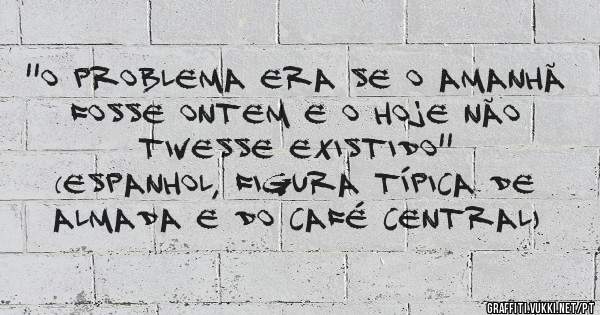 "O PROBLEMA ERA SE O AMANHÃ
FOSSE ONTEM E O HOJE NÃO
TIVESSE EXISTIDO"
(ESPANHOL, FIGURA TÍPICA DE
ALMADA E DO CAFÉ CENTRAL)
GRAFFITI.VUKKI.NET/PT